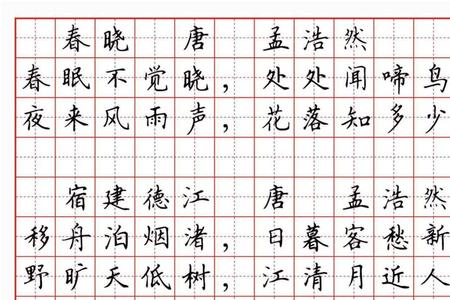 春晓 唐 孟浩然
春眠不觉晓，处处闻啼鸟
夜来风雨声，花落知多少
宿建德江 唐 孟浩然
移舟泊烟渚，日暮客愁新
野旷天低树，江清月近人